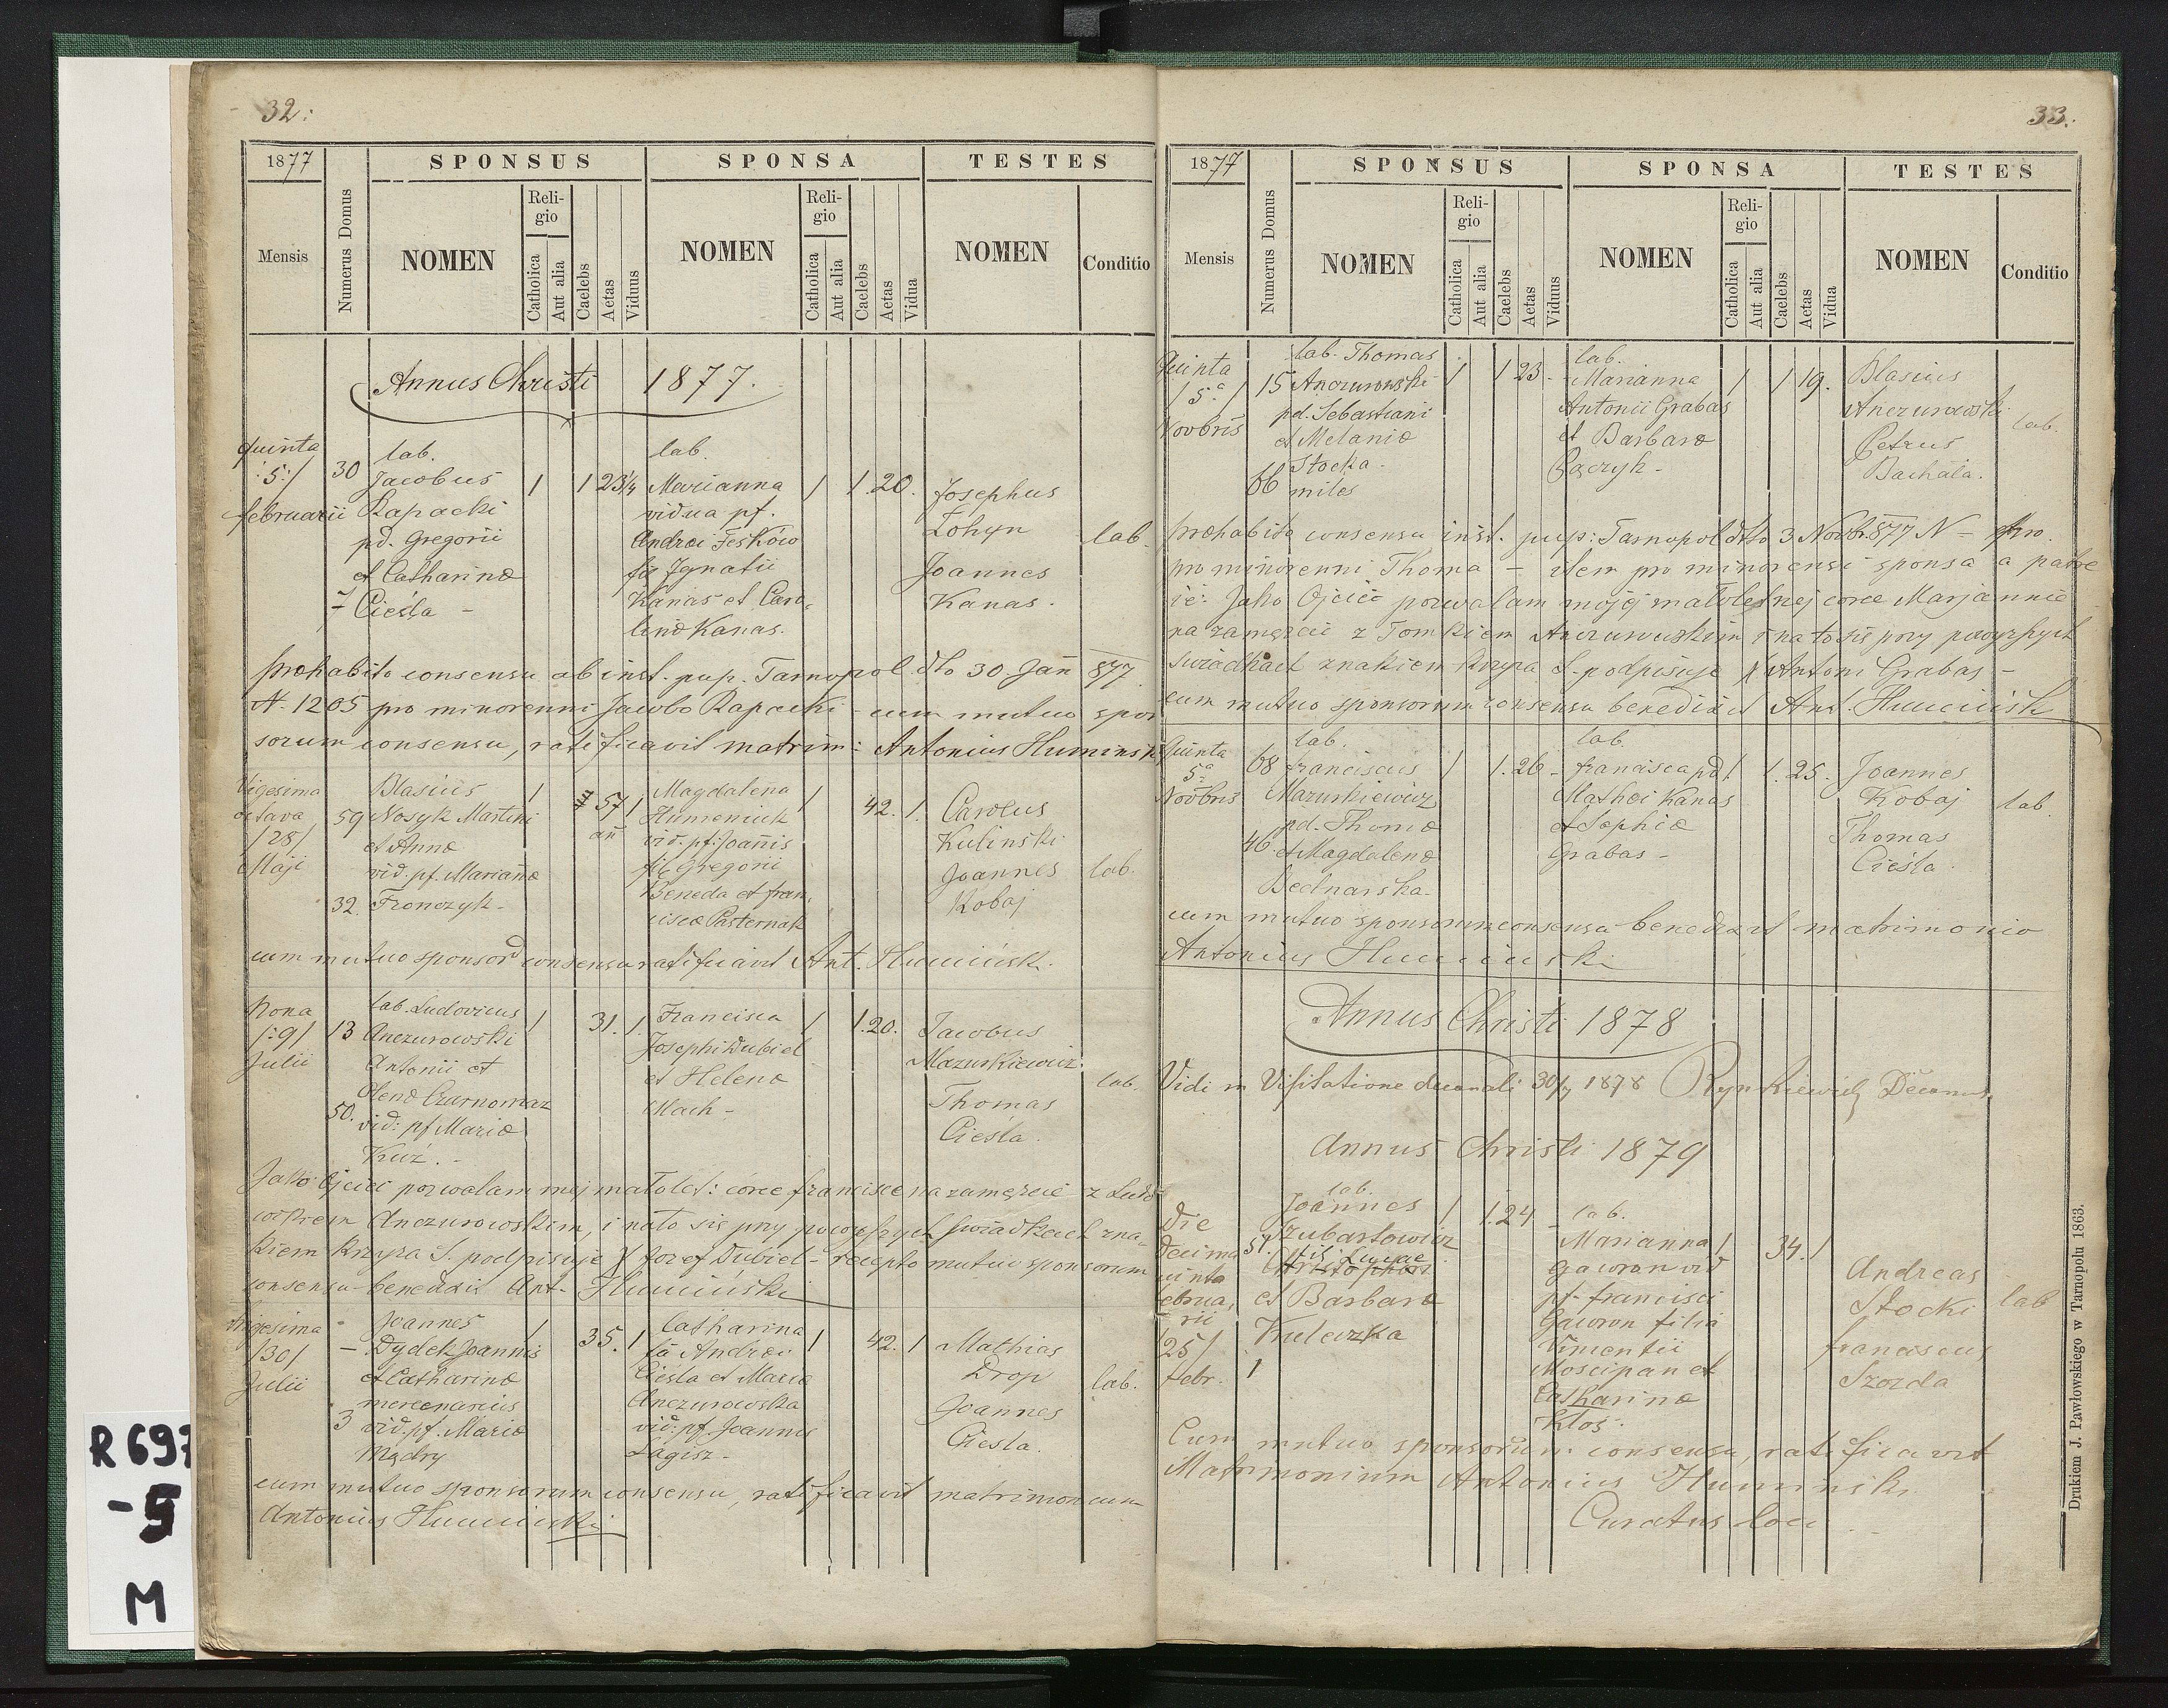 32:
1877
SPONSUS SPONSA TESTES
Mensis
Numerus Domus
NOMEN
Reli-
gio
Catholica
Aut alia
Caelebs
Aetas
Viduus
NOMEN
Reli-
gio
Catholica
Aut alia
Caelebs
Aetas
Vidua
NOMEN
Conditio
Annus Christi 1877.
quinta
/:5:/
februarii
30
7
lab.
Jacobus
Rapacki
pd. Gregorii
et Catharinæ
Cieśla -
1 1 23¼
lab.
Marianna
vidua pf.
Andreæ Feśków
fa Ignatii
Kanas et Caro-
linæ Kanas.
1 1. 20.
Josephus
Łohyn
Joannes
Kanas.
lab.
præhabito consensu ab inst. pup. Tarnopol dto 30. Jan 877
N. 1205 pro minorenni Jacobo Rapacki - cum mutuo spon
sorum consensu, ratificavit matrim: Antonius Humiński
Vigesima
octava
/28/
Maji
59
32.
Blasius
Nosyk Martini
et Annæ
vid. pf. Mariannæ
Fronczyk -
1 57 1
añ
Magdalena
Humeniuk
vid. pf. Joannis
fil Gregorii
Beneda et fran-
ciscæ Pasternak
1 42. 1.
Carolus
Kulinski
Joannes
Kobaj
lab.
cum mutuo sponsor consensu ratificavit Ant. Humiński.
Nona
/:9/
Julii
13
50.
lab. Ludovicus
Anczurowski
Antonii et
Olenæ Czarnomaz
vid: pf Mariæ
Kuź. -
1 31. 1.
Francisca
Josephi Dubiel
et Helenæ
Mach -
1 1. 20.
Jacobus
Mazurkiewicz.
Thomas
Cieśla.
lab.
Jako Ojciec pozwalam mej małolet: córce francisce na zamęzcie z Ludo
wikiem Anczurowskim, i nato się przy powyższych świadkach zna-
kiem krzyża S. podpisuje X Jozef Dubiel - recepto mutuo sponsorum
consensu - benedixi Ant. Humiński
Trigesima
/30/
Julii
-
3
Joannes
Dydek Joannis
et Catharinæ
mercenarius
vid. pf. Mariæ
Mądry
1 35. 1
Catharina
fa Andreæ
Cieśla et Mariæ
Anczurowska
vid: pf Joannis
Łagisz -
1 42. 1
Mathias
Drop
Joannes
Cieśla.
lab.
cum mutuo sponsorum consensu, ratificavit matrimonium
Antonius Humiński
R 697
-5
M
33.
1877
SPONSUS SPONSA TESTES
Mensis
Numerus Domus
NOMEN
Reli-
gio
Catholica
Aut alia
Caelebs
Aetas
Viduus
NOMEN
Reli-
gio
Catholica
Aut alia
Caelebs
Aetas
Vidua
NOMEN
Conditio
Quinta
/5ª/
Novbris
15
66
lab. Thomas
Anczurowski
pd. Sebastiani
et Melaniæ
Stocka.
miles
1 1 23.
lab.
Marianna
Antonii Grabas
et Barbaræ
Pączyk -
1 1 19.
Blasius
Anczurowski
Petrus
Bachała.
lab.
præhabito consensu inst. pup: Tarnopol dtto 3 Novbr. 877 N - pro
pro minorenni Thoma - item pro minorensi sponsa a patre
ie: Jako Ojciec pozwalam mojej małoletnej córce Marjannie
na zamęzcie z Tomkiem Anczurowskim i na to się przy powyższych
świadkach znakiem krzyża S. podpisuje X Antoni Grabas -
cum mutuo sponsorum consensu benedixit Ant. Humiński
Quinta
5ª
Novbris
68
46.
lab.
Franciscus
Mazurkiewicz
pd. Thomæ
et Magdalenæ
Bednarska -
1 1. 26 -
lab.
francisca pd.
Mathei Kanas
et Sophiæ
Grabas -
1 1. 25.
Joannes
Kobaj
Thomas
Cieśla.
lab.
cum mutuo sponsorum consensu benedixit matrimonio
Antonius Humiński
Annus Christi 1878
Vidi in Visitatione decanali 30/7 1878 Rynkiewicz Decanus
Annus Christi 1879
Die
Decima
uinta
ebrua-
rii
25/
febr.
57.
1
lab.
Joannes
Szubartowicz
fil: Lucae
Christophori
et Barbaræ
Kuleczka
1 1. 24
lab.
Marianna
Gawron vid
pf. francisci
Gawron filia
Vincentii
Moscipan et
Catharinæ
Kłos.
1 34. 1
Andreas
Stocki
franciscus
Szozda
lab
Cum mutuo sponsorum consensu, ratificavit
Matrimonium Antonius Humiński
Curatus loci
Drukiem J. Pawłowskiego w Tarnopolu 1863.